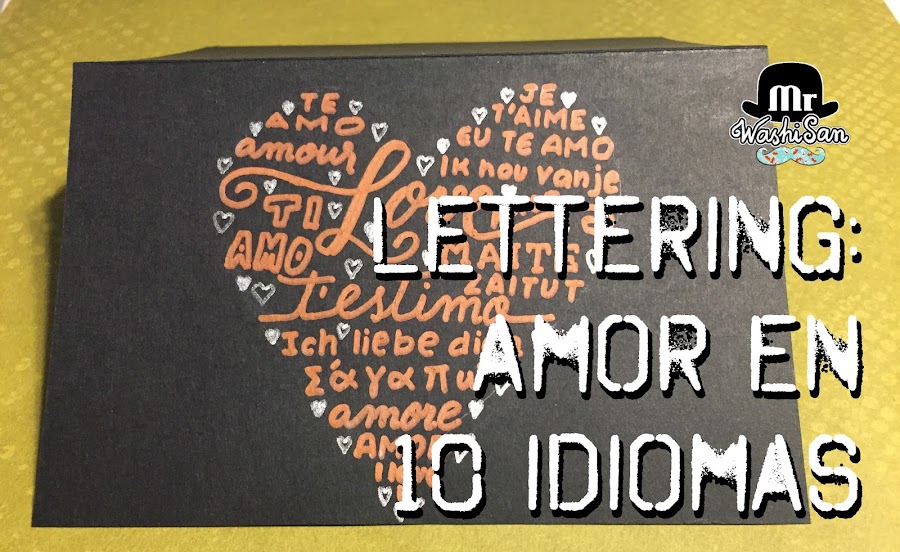 TE
AMO
amour
TI
AMO
Love
t'estimo
JE
T'AIME
EU TE AMO
Ik hou van je
MAITE
ZAITUT
Ich liebe
Σ'άγαπω
amore
Mr
WashiSan
LETTERING:
AMOR EN
10 IDIOMAS